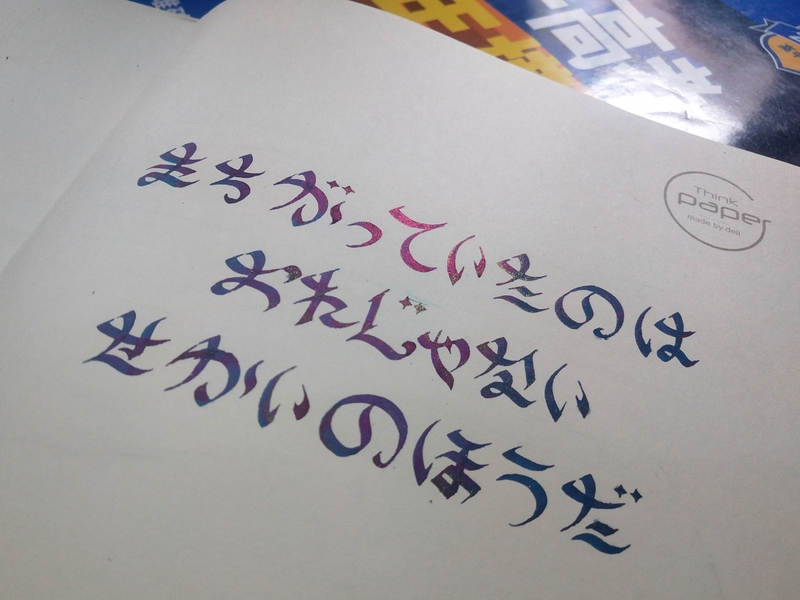 高
Think
paper
made by deli
まちがっていたのは
おれじゃない
せかいのほうだ